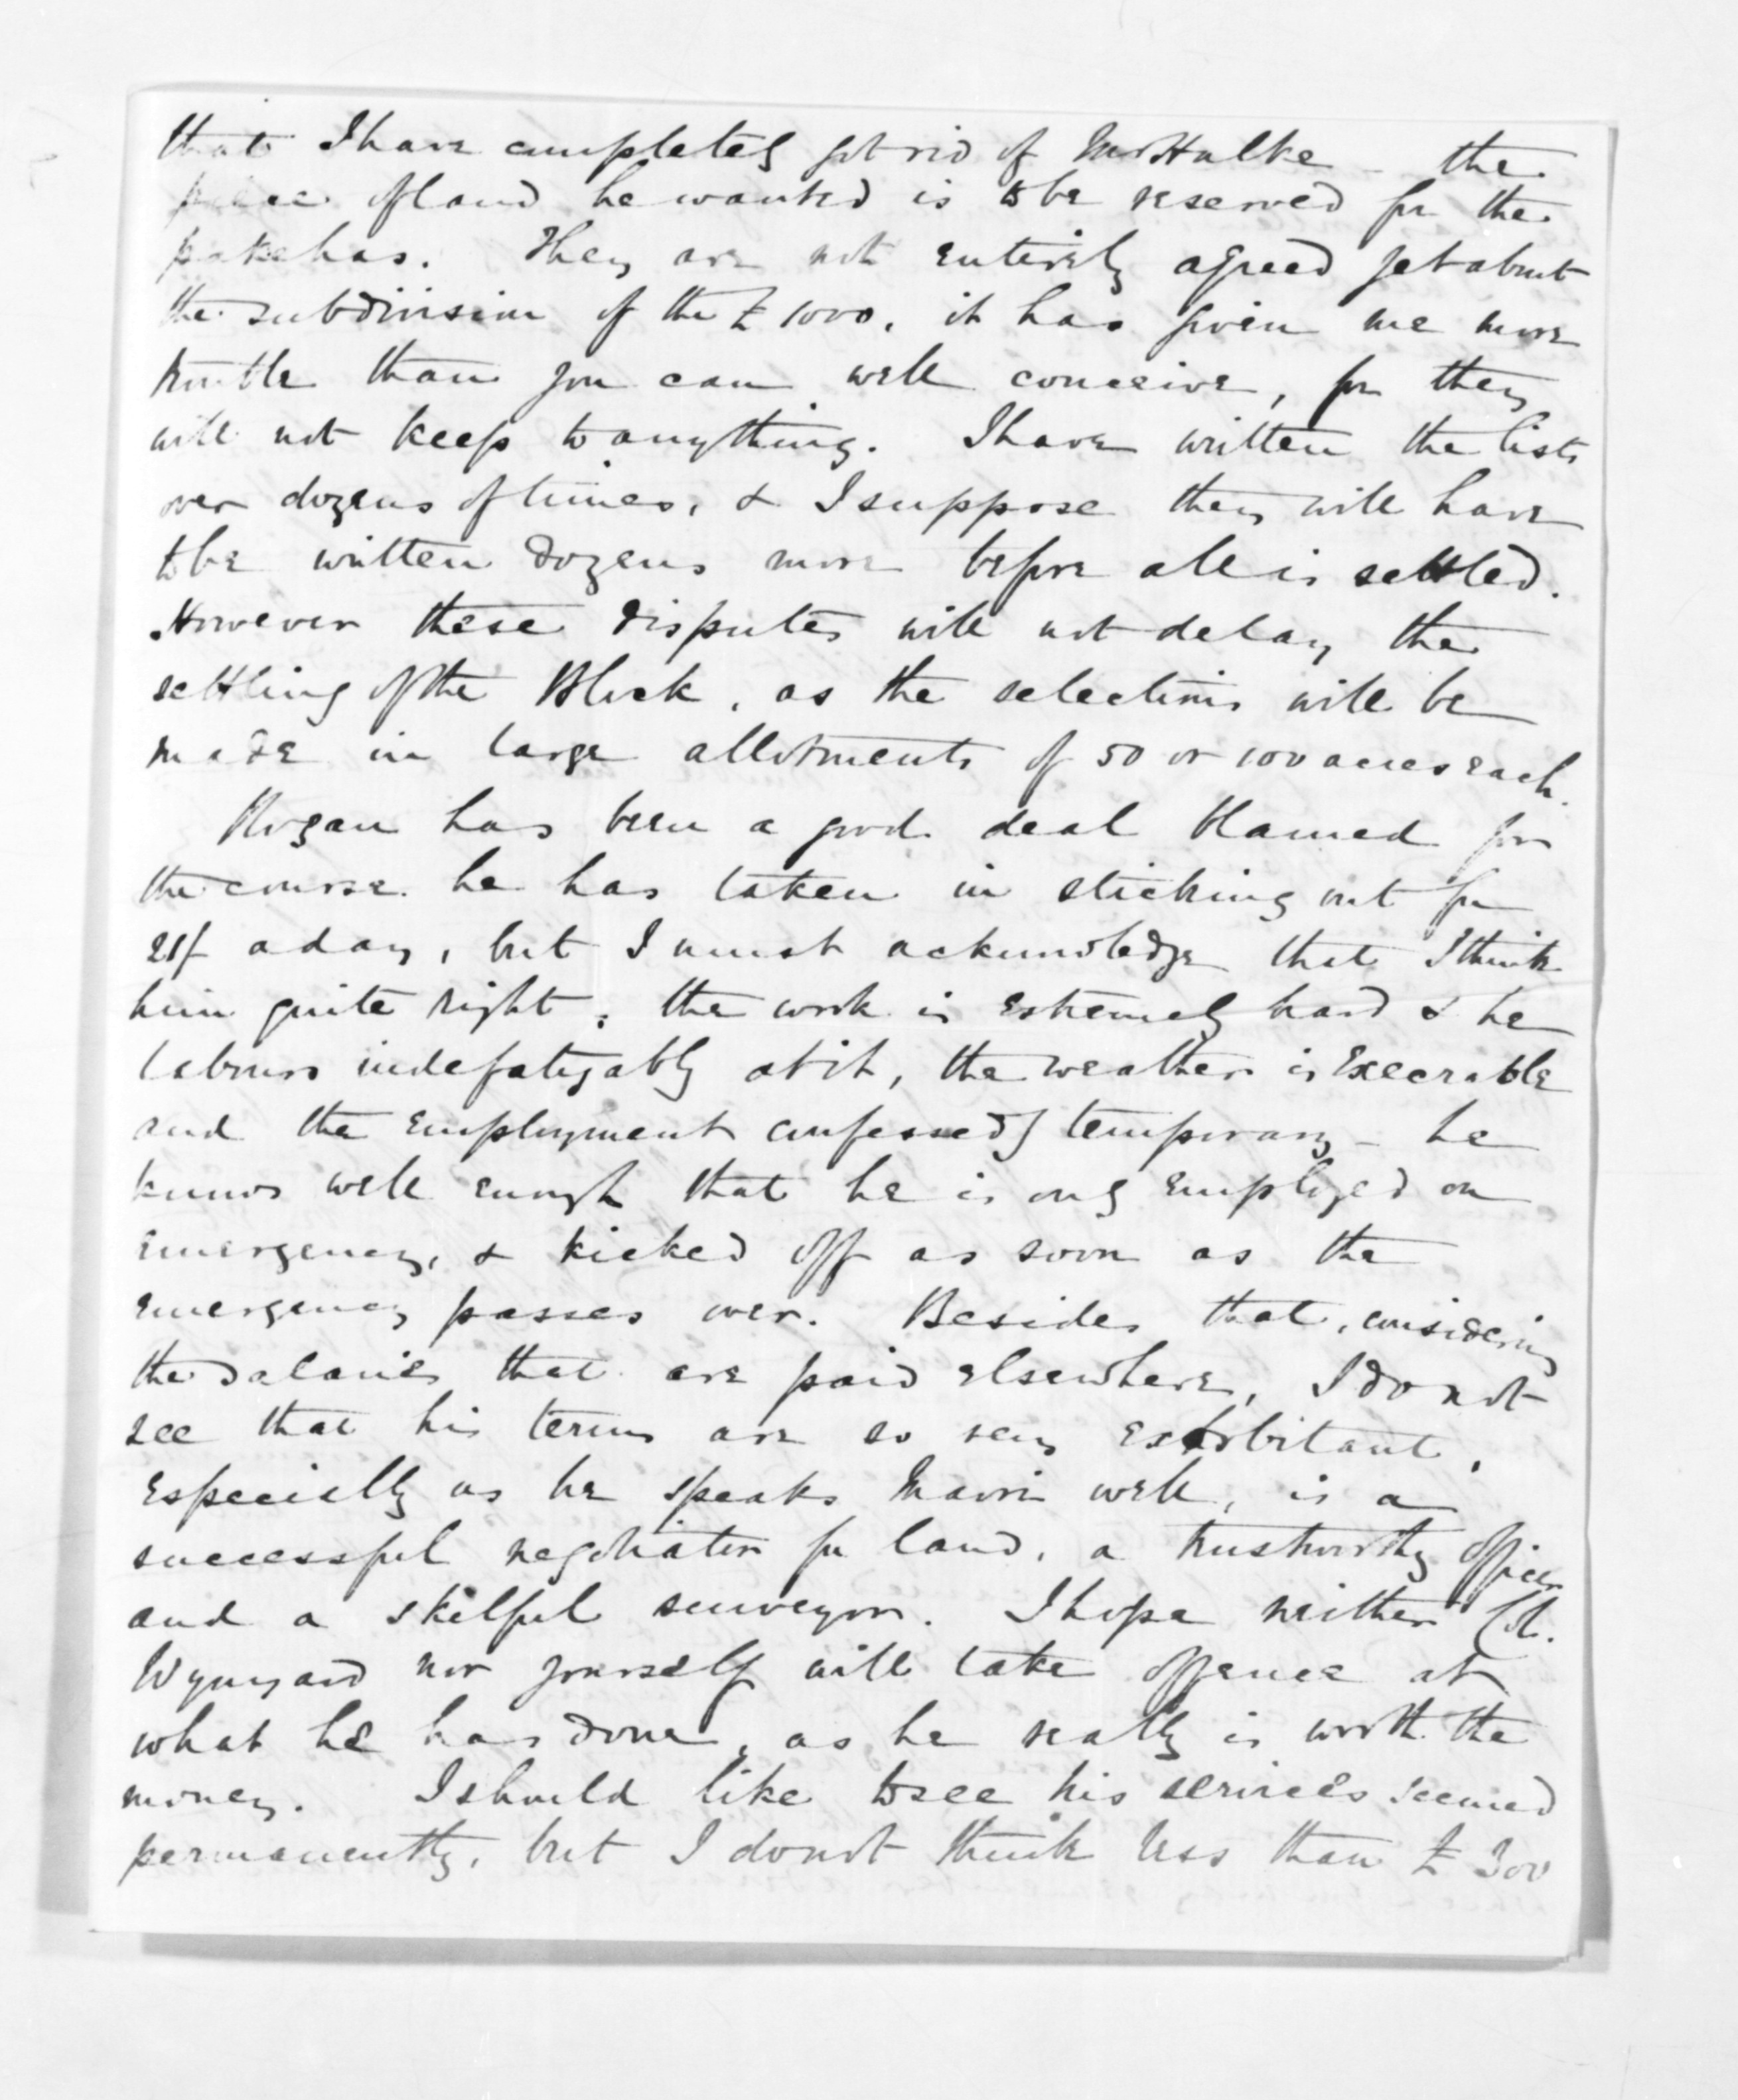 that I have completely got rid of Mr Hulke - the
piece of land he wanted is to be reserved for the
pakehas. They are not entirely agreed yet about
the subdivision of the £1000, it has given me more
trouble than you can well conceive, for they
will not keep to anything. I have written the lists
over dozens of times, & I suppose they will have
to be written dozens more before all is settled.
However these disputes will not delay the
settling of the Block, as the selections will be
made in large allotments of 50 or 100 acres each.
Rogan has been a good deal blamed for
the course he has taken in sticking out for
21/ a day, but I must acknowledge that I think
him quite right; the work is extremely hard & he
labours indefatigably at it, the weather is execrable
and the employment confessedly temporary - he
knows well enough that he is only employed on
emergency, & kicked off as soon as the
emergency passes over. Besides that, considering
the salaries that are paid elsewhere, I do not
see that his terms are so very exorbitant,
especially as he speaks Maori well, is a
successful negotiator for land, a trustworthy officer
and a skilful surveyor. I hope neither Col.
Wynyard nor yourself will take offence at
what he has done, as he really is worth the
money. I should like to see his services secured
permanently, but I do not think less than £300